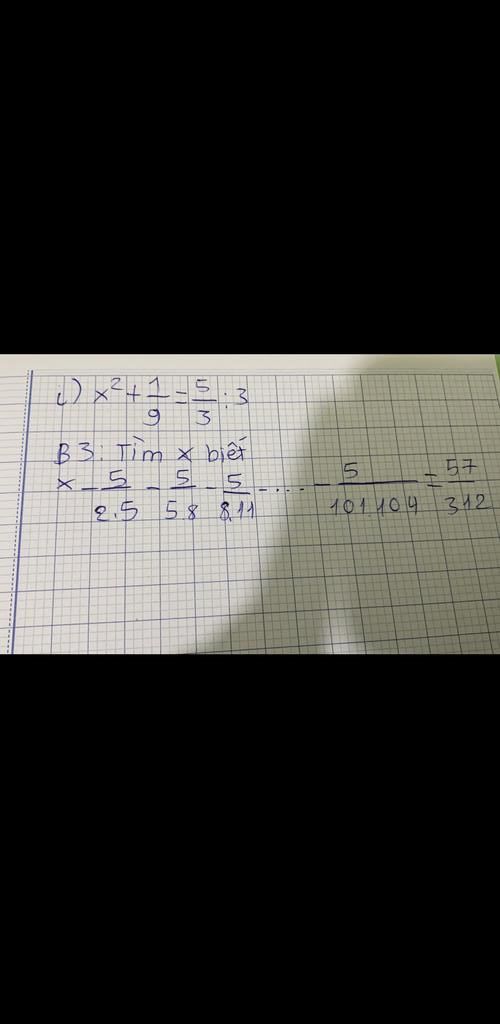 i) x² + 1/9 = 5/3 : 3
B3: Tìm x biết
x - 5/2.5 - 5/5.8 - 5/8.11 - .... - 5/101.104 = 57/312